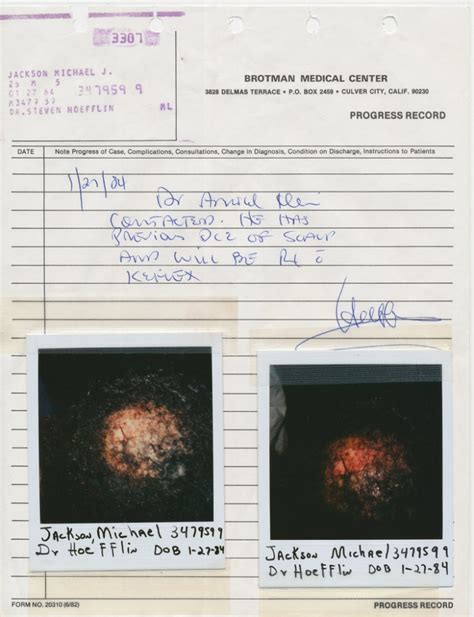 3307
JACKSON MICHAEL J.
25 M S 3479599
01 27 84
M3479 59
DR.STEVEN HOEFFLIN ML
BROTMAN MEDICAL CENTER
3828 DELMAS TERRACE • P.O. BOX 2459 • CULVER CITY, CALIF. 90230
PROGRESS RECORD
DATE Note Progress of Case, Complications, Consultations, Change in Diagnosis, Condition on Discharge, Instructions to Patients
1/27/84 Dr Arnold Klein
CONTACTED. HE HAS
PREVIOUS OF SCALP
AND WILL BE Rx c̄
KEFLEX
Jackson, Michael 3479599
Dr HoeFFlin DOB 1-27-84
Jackson Michael 3479599
Dr HoeFFlin DOB 1-27-84
FORM NO. 20310 (6/82) PROGRESS RECORD